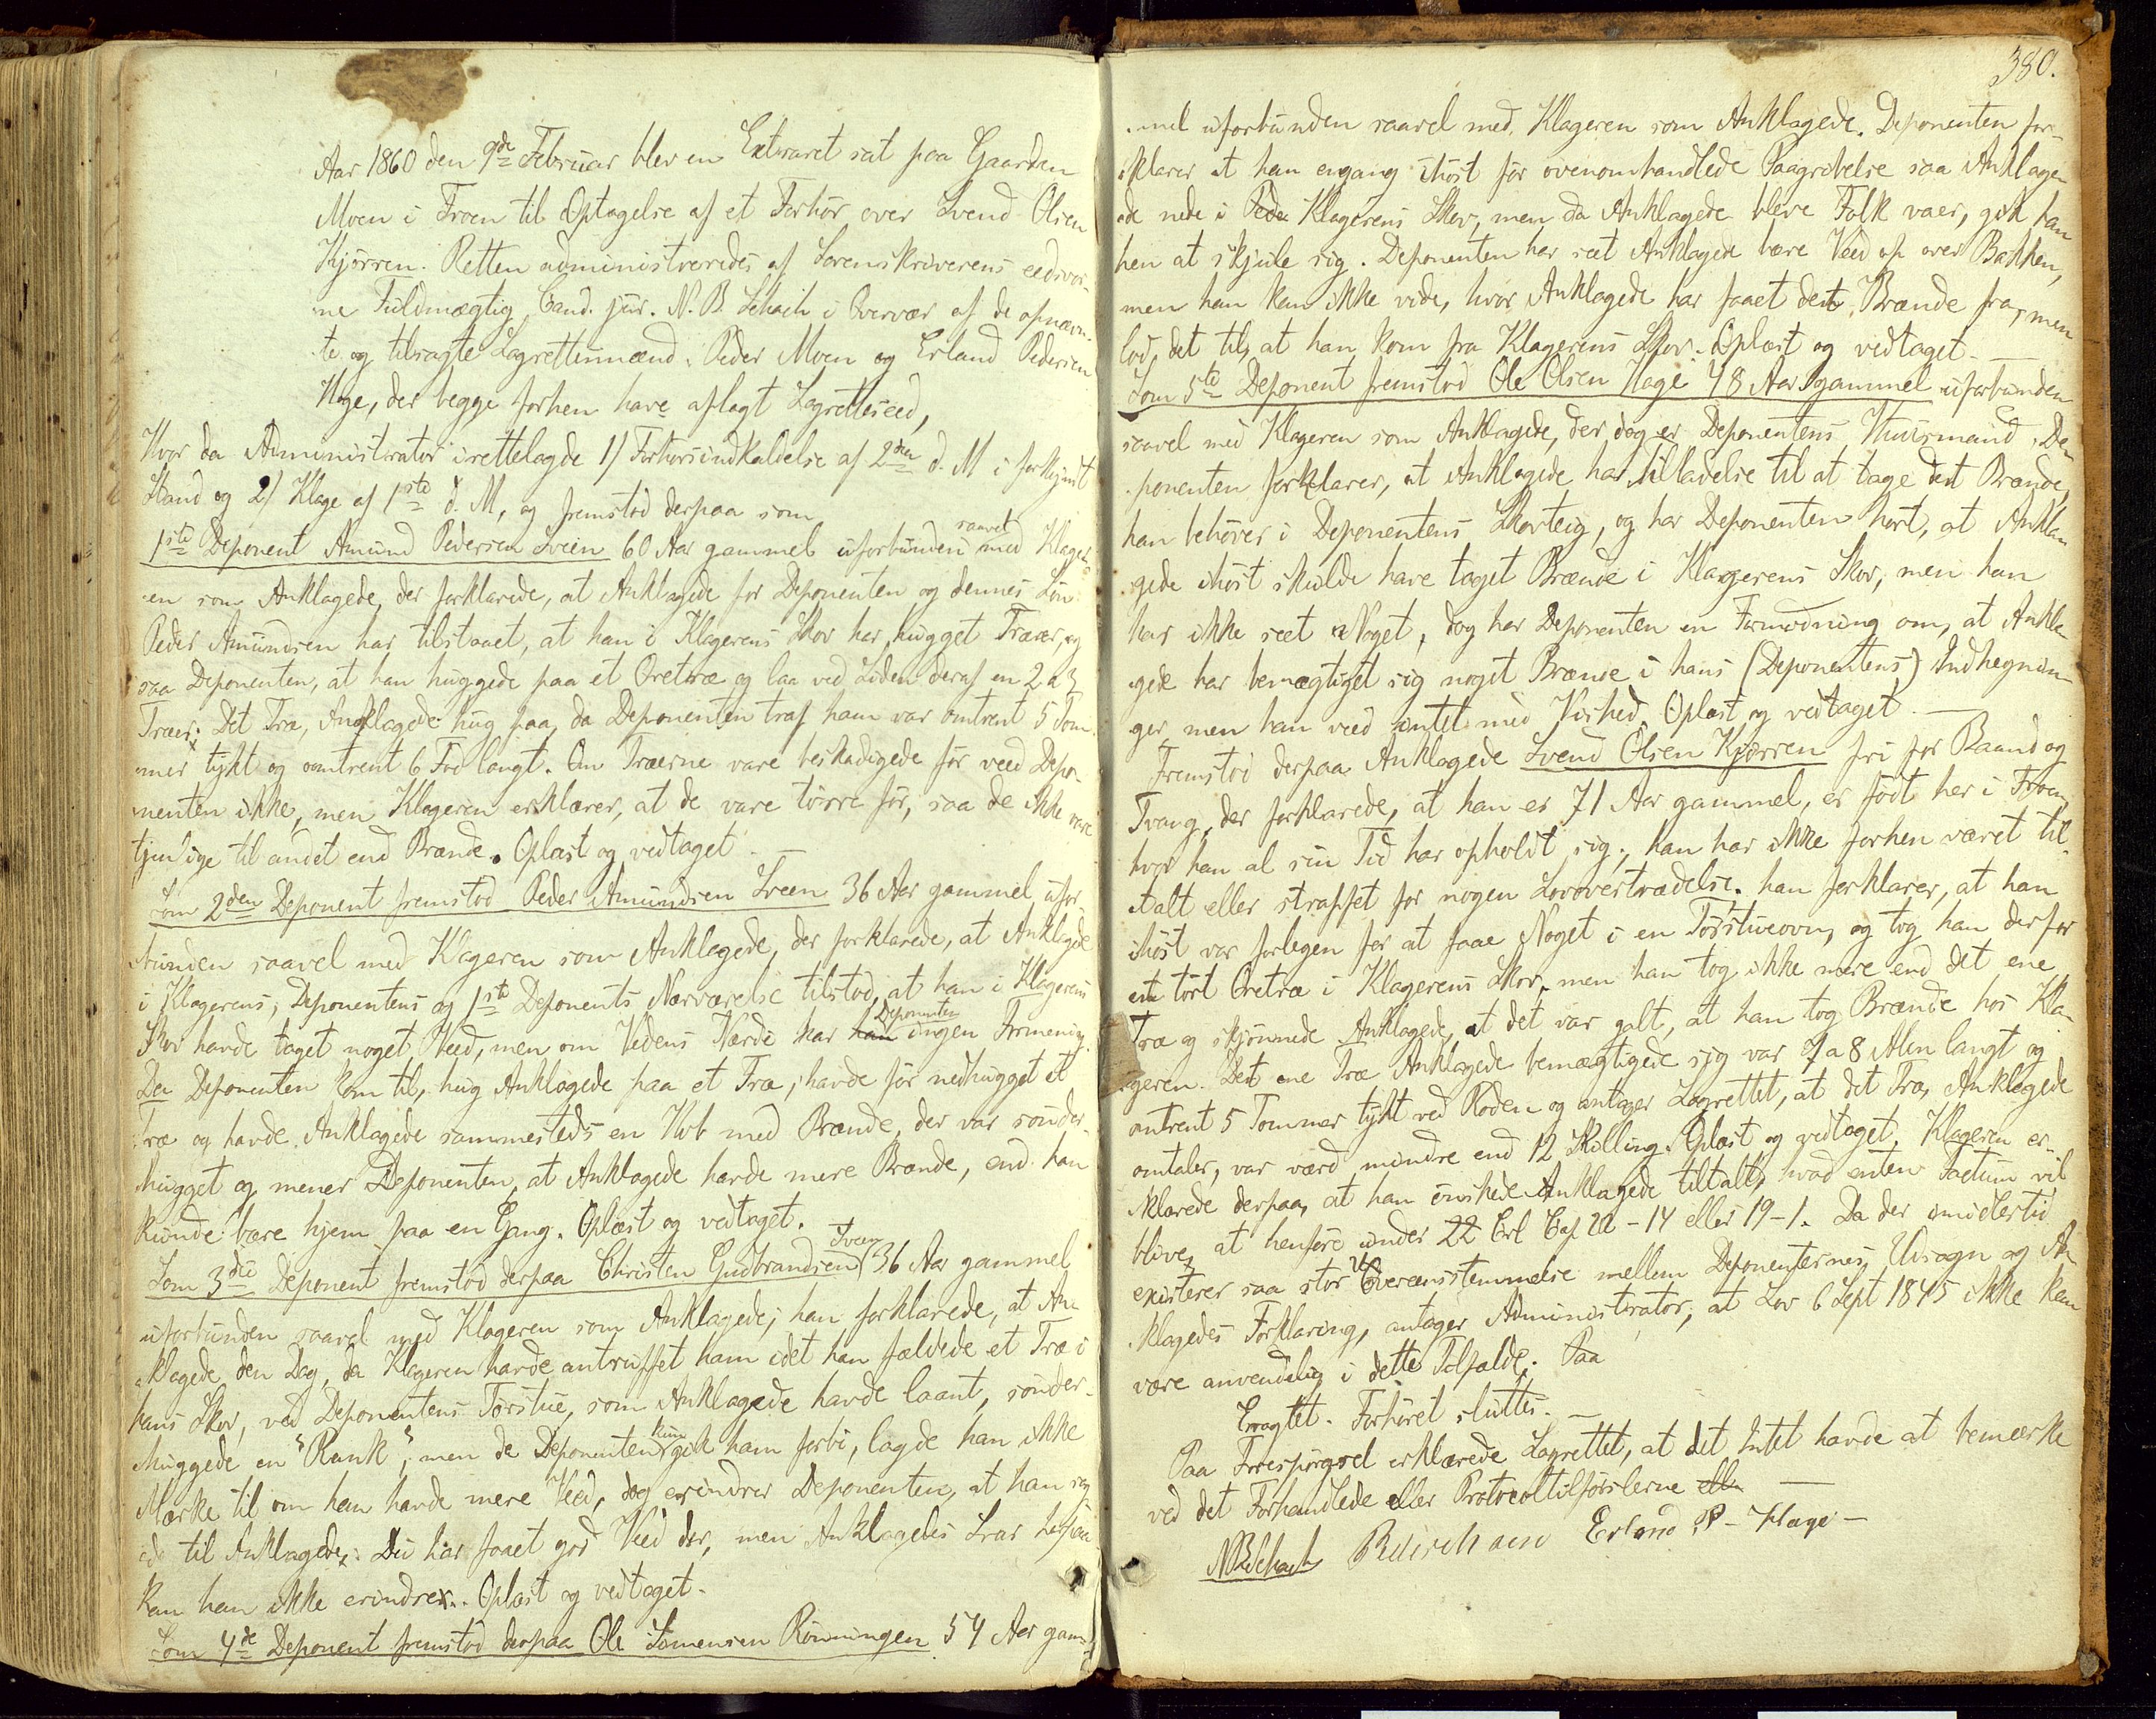 Aar 1860 den 9de Februar blev en Extraret sat paa Gaarden
Moen i Froen til Optagelse af et Forhør over Svend Olsen
Kjørren. Retten administreredes af Sorenskriverens eedsvor-
ne Fuldmægtig, Cand. jur. N. B. Schach i Overvær af de opnævn-
te og tilsagte Lagrettesmænd: Peder Moen og Erland Pedersen
Hage, der begge forhen have aflagt Lagretteseed,
Hvor da Administrator irettelagde 1/ Forhørsindkaldelse af 2den d. M i forkyndt
Stand og 2/ Klage af 1ste d. M, og fremstod derpaa som
1ste Deponent Amund Pedersen Sveen 60 Aar gammel uforbunden saavel med Klager-
en som Anklagede, der forklarede, at Anklagede for Deponenten og dennes Søn
Peder Amundsen har tilstaaet, at han i Klagerens Skov har hugget Træer, og
saa Deponenten, at han huggede paa et Oretræ og laa ved Siden deraf en 2 a 3
Træer; Det Træ, Anklagede hug paa, da Deponenten traf ham var omtrent 5 Tom-
mer tykt og omtrent 6 Fod langt. Om Træerne vare beskadigede før veed Depo-
nenten ikke, men Klageren erklærer, at de vare tørre før, saa de ikke vare
tjenlige til andet end Brænde. Oplæst og vedtaget. —
Som 2den Deponent fremstod Peder Amundsen Sveen 36 Aar gammel ufor-
bunden saavel med Klageren som Anklagede, der forklarede, at Anklagede
i Klagerens, Deponentens og 1ste Deponents Nærværelse tilstod, at han i Klagerens
Skov havde taget noget Veed, men om Vedens Værdi har han Deponenten ingen Formening.
Da Deponenten kom til, hug Anklagede paa et Træ, havde før nedhugget et
Træ og havde Anklagede sammesteds en Kov med Brænde, der var sønder-
hugget og mener Deponenten, at Anklagede havde mere Brænde, end han
kunde bære hjem paa en Gang. Oplæst og vedtaget.
Som 3die Deponent fremstod derpaa Christen Gudbrandsen Sveen 36 Aar gammel
uforbunden saavel med Klageren som Anklagede; han forklarede, at An-
klagede den Dag, da Klageren havde antruffet ham idet han fældede et Træ i
hans Skov, ved Deponentens Tørstue, som Anklagede havde laant, sønder-
huggede en "Rank", men da Deponenten kun gik ham forbi, lagde han ikke
Mærke til om han havde mere Veed, dog erindrer Deponenten, at han sag-
de til Anklagede: Du har faaet god Veed der, men Anklagedes Svar herpaa
kan han ikke erindre. Oplæst og vedtaget.
Som 4de Deponent fremstod derpaa Ole Simensen Rønningen 54 Aar gam-
380.
mel uforbunden saavel med Klageren som Anklagede. Deponenten for-
klarer at han engang ihøst før ovenomhandlede Paagribelse saa Anklage-
de nede i Klagerens Skov, men da Anklagede blev Folk vaer, gik han
hen at skjule sig. Deponenten har seet Anklagede bære Veed op over Bakken,
men han kan ikke vide, hvor Anklagede har faaet det Brænde fra, men
lod det til, at han kom fra Klagerens Skov. Oplæst og vedtaget. —
Som 5te Deponent fremstod Ole Olsen Hage 48 Aar gammel uforbunden
saavel med Klageren som Anklagede, der dog er Deponentens Huusmand. De-
ponenten forklarer, at Anklagede har Tilladelse til at tage det Brænde,
han behøver i Deponentens Skovteig, og har Deponenten hørt, at Ankla-
gede ihøst skulde have taget Brænde i Klagerens Skov, men han
har ikke seet Noget, dog har Deponenten en Formodning om, at Ankla-
gede har bemægtiget sig noget Brænde i hans (Deponentens) Indhegnin-
ger, men han veed intet med Vished. Oplæst og vedtaget. —
Fremstod derpaa Anklagede Svend Olsen Kjørren fri for Baand og
Tvang, der forklarede, at han er 71 Aar gammel, er født her i Froen
hvor han al sin Tid har opholdt sig; han har ikke forhen været til-
talt eller straffet for nogen Lovovertrædelse. han forklarer, at han
ihøst var forlegen for at faae Noget i en Tørstueovn, og tog han derfor
et tørt Oretræ i Klagerens Skov, men han tog ikke mere end det ene
Træ og skjønnede Anklagede, at det var galt, at han tog Brænde hos Kla-
geren. Det ene Træ Anklagede bemægtigede sig var 7 a 8 Alen langt og
omtrent 5 Tommer tykt ved Roden og antager Lagrettet, at det Træ, Anklagede
omtaler, var værd mindre end 12 Skilling. Oplæst og vedtaget. Klageren er-
klærede derpaa, at han ønskede Anklagede tiltalt, hvad enten Factum vil
blive at henføre under 22 Crl Cap 22 - 14 eller 19 - 1. Da der imidlertid
existerer saa stor Uovereensstemmelse mellem Deponenternes Udsagn og An-
klagedes Forklaring, antager Administrator, at Lov 6 Sept 1845 ikke kan
være anvendelig i dette Tilfælde. Paa
Eragtet. Forhøret sluttes. —
Paa Forespørgsel erklærede Lagrettet, at det Intet havde at bemærke
ved det Forhandlede eller Protocoltilførslerne ell —
NBSchach Erland P - Hage -